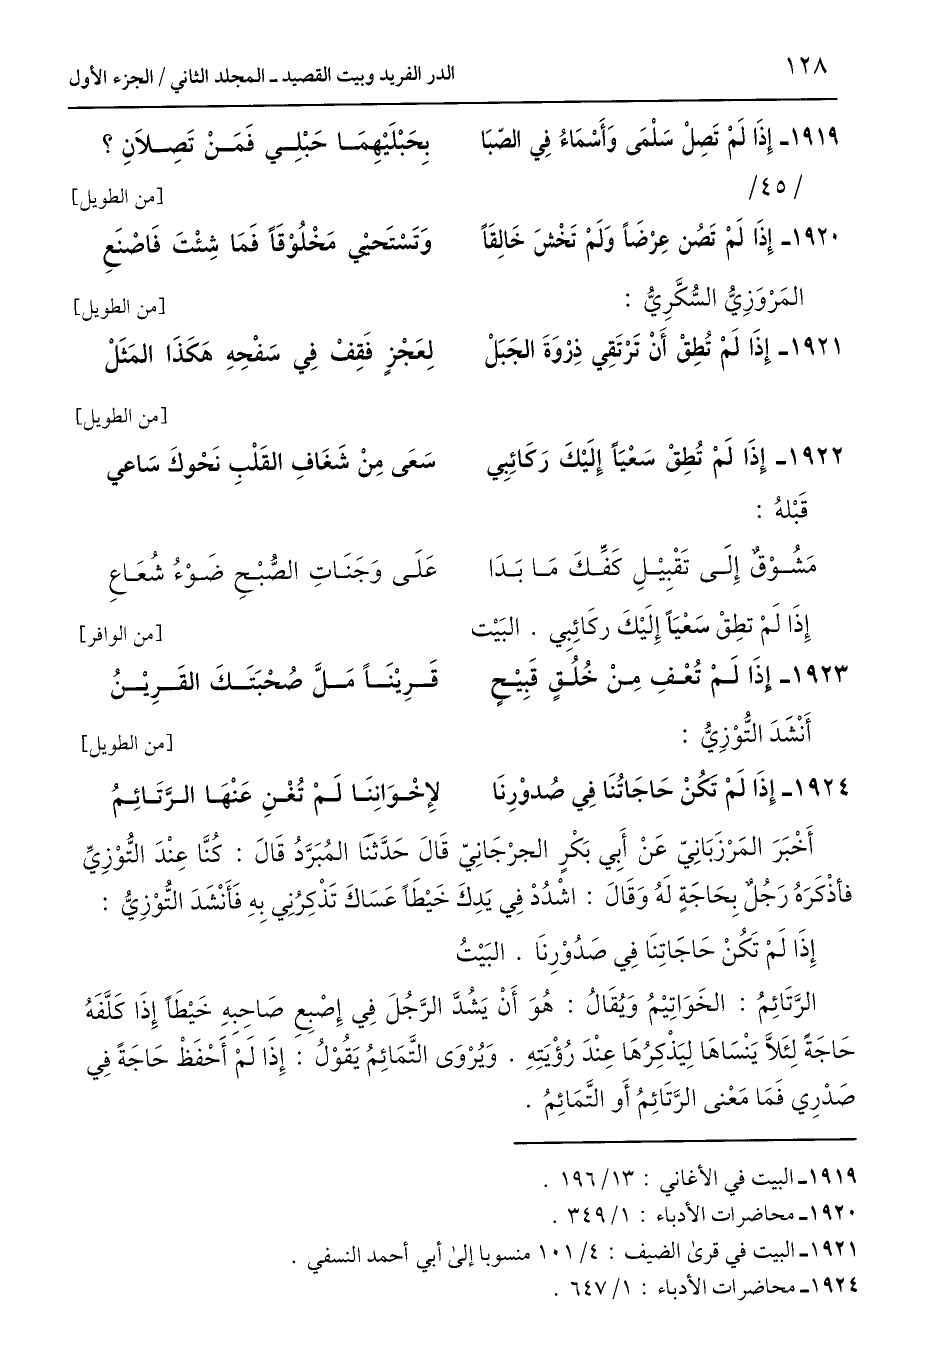 ١٢٨ الدر الفريد وبيت القصيد ـ المجلد الثاني / الجزء الأول
١٩١٩ـ إِذَا لَمْ تَصِلْ سَلْمَى وَأَسْمَاءُ فِي الصّبَا بِحَبْلَيْهِمَـا حَبْلِـي فَمَـنْ تَصِـلاَنِ ؟
/ ٤٥/
[من الطويل]
١٩٢٠ـ إِذَا لَمْ تَصُن عِرْضَاً وَلَمْ تَخْشَ خَالِقَاً وَتَسْتَحيْي مَخْلُوْقَاً فَمَا شِئْتَ فَاصْنَعِ
المَرْوَزِيُّ السُّكَّرِيُّ : [من الطويل]
١٩٢١ـ إِذَا لَمْ تُطِقْ أَنْ تَرْتَقِي ذِرْوَةَ الجَبَلْ لِعَجْزٍ فَقِفْ فِي سَفْحِهِ هَكَذَا المَثَلْ
[من الطويل]
١٩٢٢ـ إِذَا لَمْ تُطِقْ سَعْيَاً إِلَيْكَ رَكَائِبِي سَعَى مِنْ شَغَافِ القَلْبِ نَحْوكَ سَاعي
قَبْلهُ :
مَشُـوْقٌ إِلَـى تَقْبِيْـلِ كَفِّـكَ مَـا بَـدَا عَلَـى وَجَنَـاتِ الصُّبْـحِ ضَـوْءُ شُعَـاعِ
إِذَا لَمْ تطِقْ سَعْيَاً إِلَيْكَ ركَائِبِي . البَيْت [من الوافر]
١٩٢٣ـ إِذَا لَـمْ تُعْـفِ مِـنْ خُلُـقٍ قَبِيْـحٍ قَـرِيْنَـاً مَـلَّ صُحْبَتَـكَ القَـرِيْـنُ
أَنْشَدَ التُّوْزِيُّ : [من الطويل]
١٩٢٤ـ إِذَا لَمْ تَكُنْ حَاجَاتُنَا فِي صُدُورِنَا لإِخْـوَانِنَـا لَـمْ تُغْـنِ عَنْهَـا الـرَّتَـائِـمُ
أَخْبَرَ المَرْزَبَانِيّ عَنْ أَبِي بَكْرٍ الجرْجَانِيّ قَالَ حَدَّثَنَا المُبَرَّدُ قَالَ : كُنَّا عِنْدَ التُّوْزِيِّ
فأذْكَرَهُ رَجُلٌ بِحَاجَةٍ لَهُ وَقَالَ : اشْدُدْ فِي يَدِكَ خَيْطَاً عَسَاكَ تَذْكِرُنِي بِهِ فَأَنْشَدَ التُّوْزِيُّ :
إِذَا لَمْ تَكُنْ حَاجَاتِنَا فِي صَدُوْرِنَا . البَيْتُ
الرَّتَائِمُ : الخَوَاتِيْمُ وَيُقَالُ : هُوَ أَنْ يَشُدَّ الرَّجُلَ فِي إِصْبِعِ صَاحِبِهِ خَيْطَاً إِذَا كَلَّفَهُ
حَاجَةً لِئَلاَّ يَنْسَاهَا لِيَذْكِرُهَا عِنْدَ رُؤْيَتِهِ . وَيُرْوَى التَّمَائِمُ يَقُوْلُ : إِذَا لَمْ أَحْفَظْ حَاجَةً فِي
صَدْرِي فَمَا مَعْنى الرَّتَائِمُ أَو التَّمَائِمُ .
١٩١٩ـ البيت في الأغاني : ١٣/ ١٩٦ .
١٩٢٠ـ محاضرات الأدباء : ١/ ٣٤٩ .
١٩٢١ـ البيت في قرىٰ الضيف : ٤/ ١٠١ منسوبا إلىٰ أبي أحمد النسفي .
١٩٢٤ـ محاضرات الأدباء : ١/ ٦٤٧ .